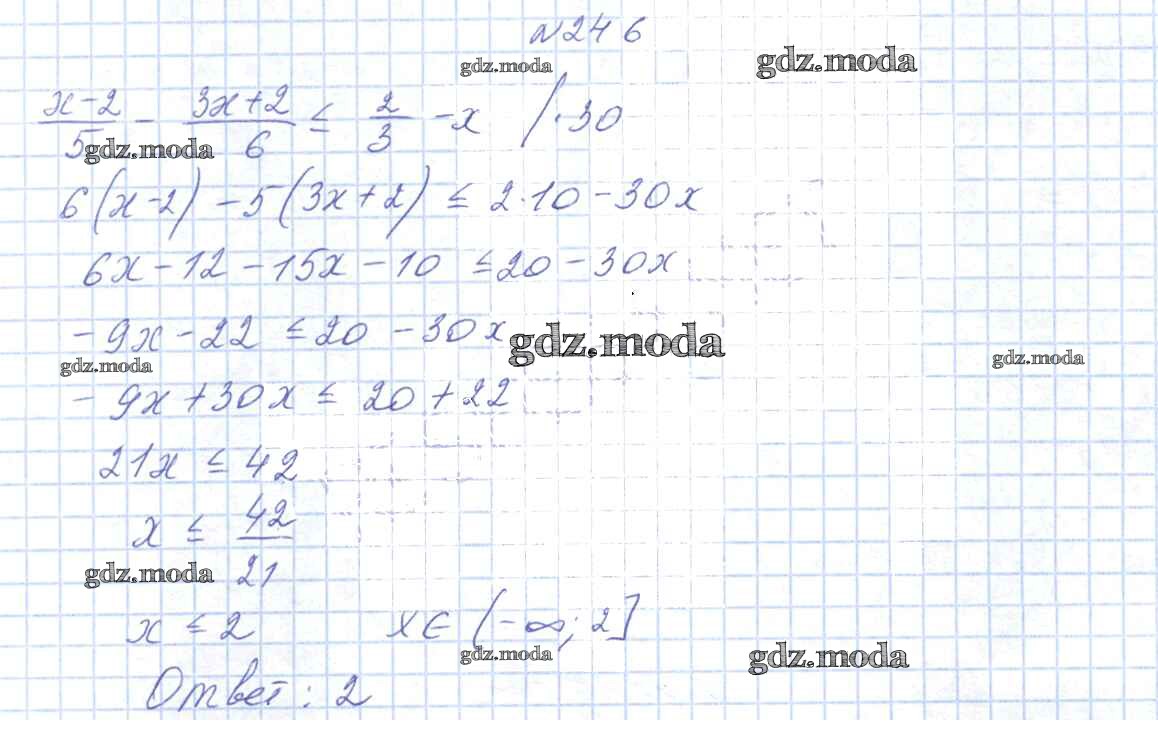 №246
gdz.moda
gdz.moda
x-2/5 - 3x+2/6 ≤ 2/3 -x /·30
gdz.moda
6(x-2) -5(3x+2) ≤ 2·10-30x
6x-12-15x-10 ≤20-30x
-9x-22 ≤20-30x
gdz.moda
gdz.moda
gdz.moda
-9x+30x ≤ 20+22
21x ≤ 42
x ≤ 42/21
gdz.moda
x ≤ 2 x∈(-∞; 2]
gdz.moda
gdz.moda
Ответ: 2